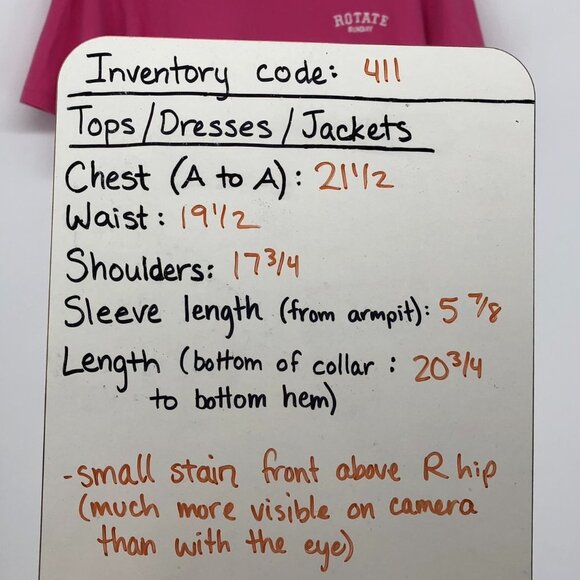 ROTATE
SUNDAY
Inventory code: 411
Tops/Dresses/Jackets
Chest (A to A): 21 1/2
Waist: 19 1/2
Shoulders: 17 3/4
Sleeve length (from armpit): 5 7/8
Length (bottom of collar : 20 3/4
to bottom hem)
-small stain front above R hip
(much more visible on camera
than with the eye)